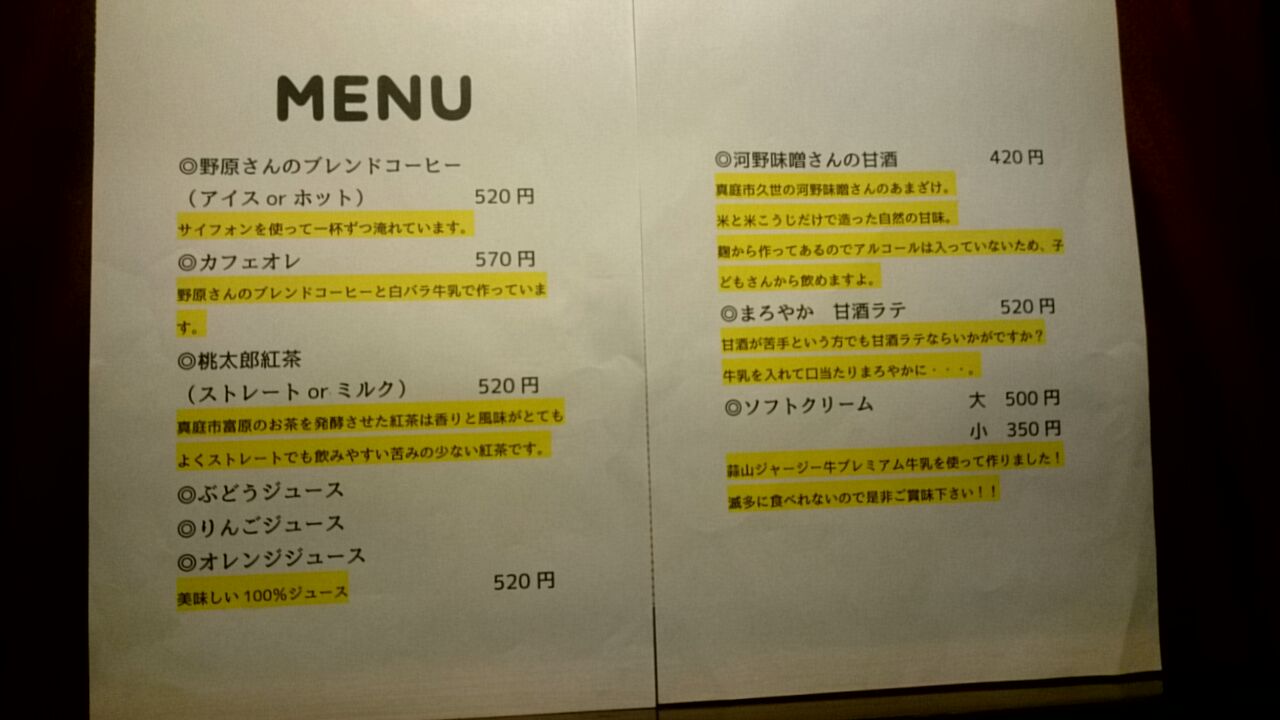 MENU
◎野原さんのブレンドコーヒー
（アイス or ホット） 520 円
サイフォンを使って一杯ずつ淹れています。
◎カフェオレ 570 円
野原さんのブレンドコーヒーと白バラ牛乳で作っていま
す。
◎桃太郎紅茶
（ストレート or ミルク） 520 円
真庭市富原のお茶を発酵させた紅茶は香りと風味がとても
よくストレートでも飲みやすい苦みの少ない紅茶です。
◎ぶどうジュース
◎りんごジュース
◎オレンジジュース
美味しい 100%ジュース 520 円
◎河野味噌さんの甘酒 420 円
真庭市久世の河野味噌さんのあまざけ。
米と米こうじだけで造った自然の甘味。
麹から作ってあるのでアルコールは入っていないため、子
どもさんから飲めますよ。
◎まろやか　甘酒ラテ 520 円
甘酒が苦手という方でも甘酒ラテならいかがですか？
牛乳を入れて口当たりまろやかに・・・。
◎ソフトクリーム 大 500 円
小 350 円
蒜山ジャージー牛プレミアム牛乳を使って作りました！
滅多に食べれないので是非ご賞味下さい！！